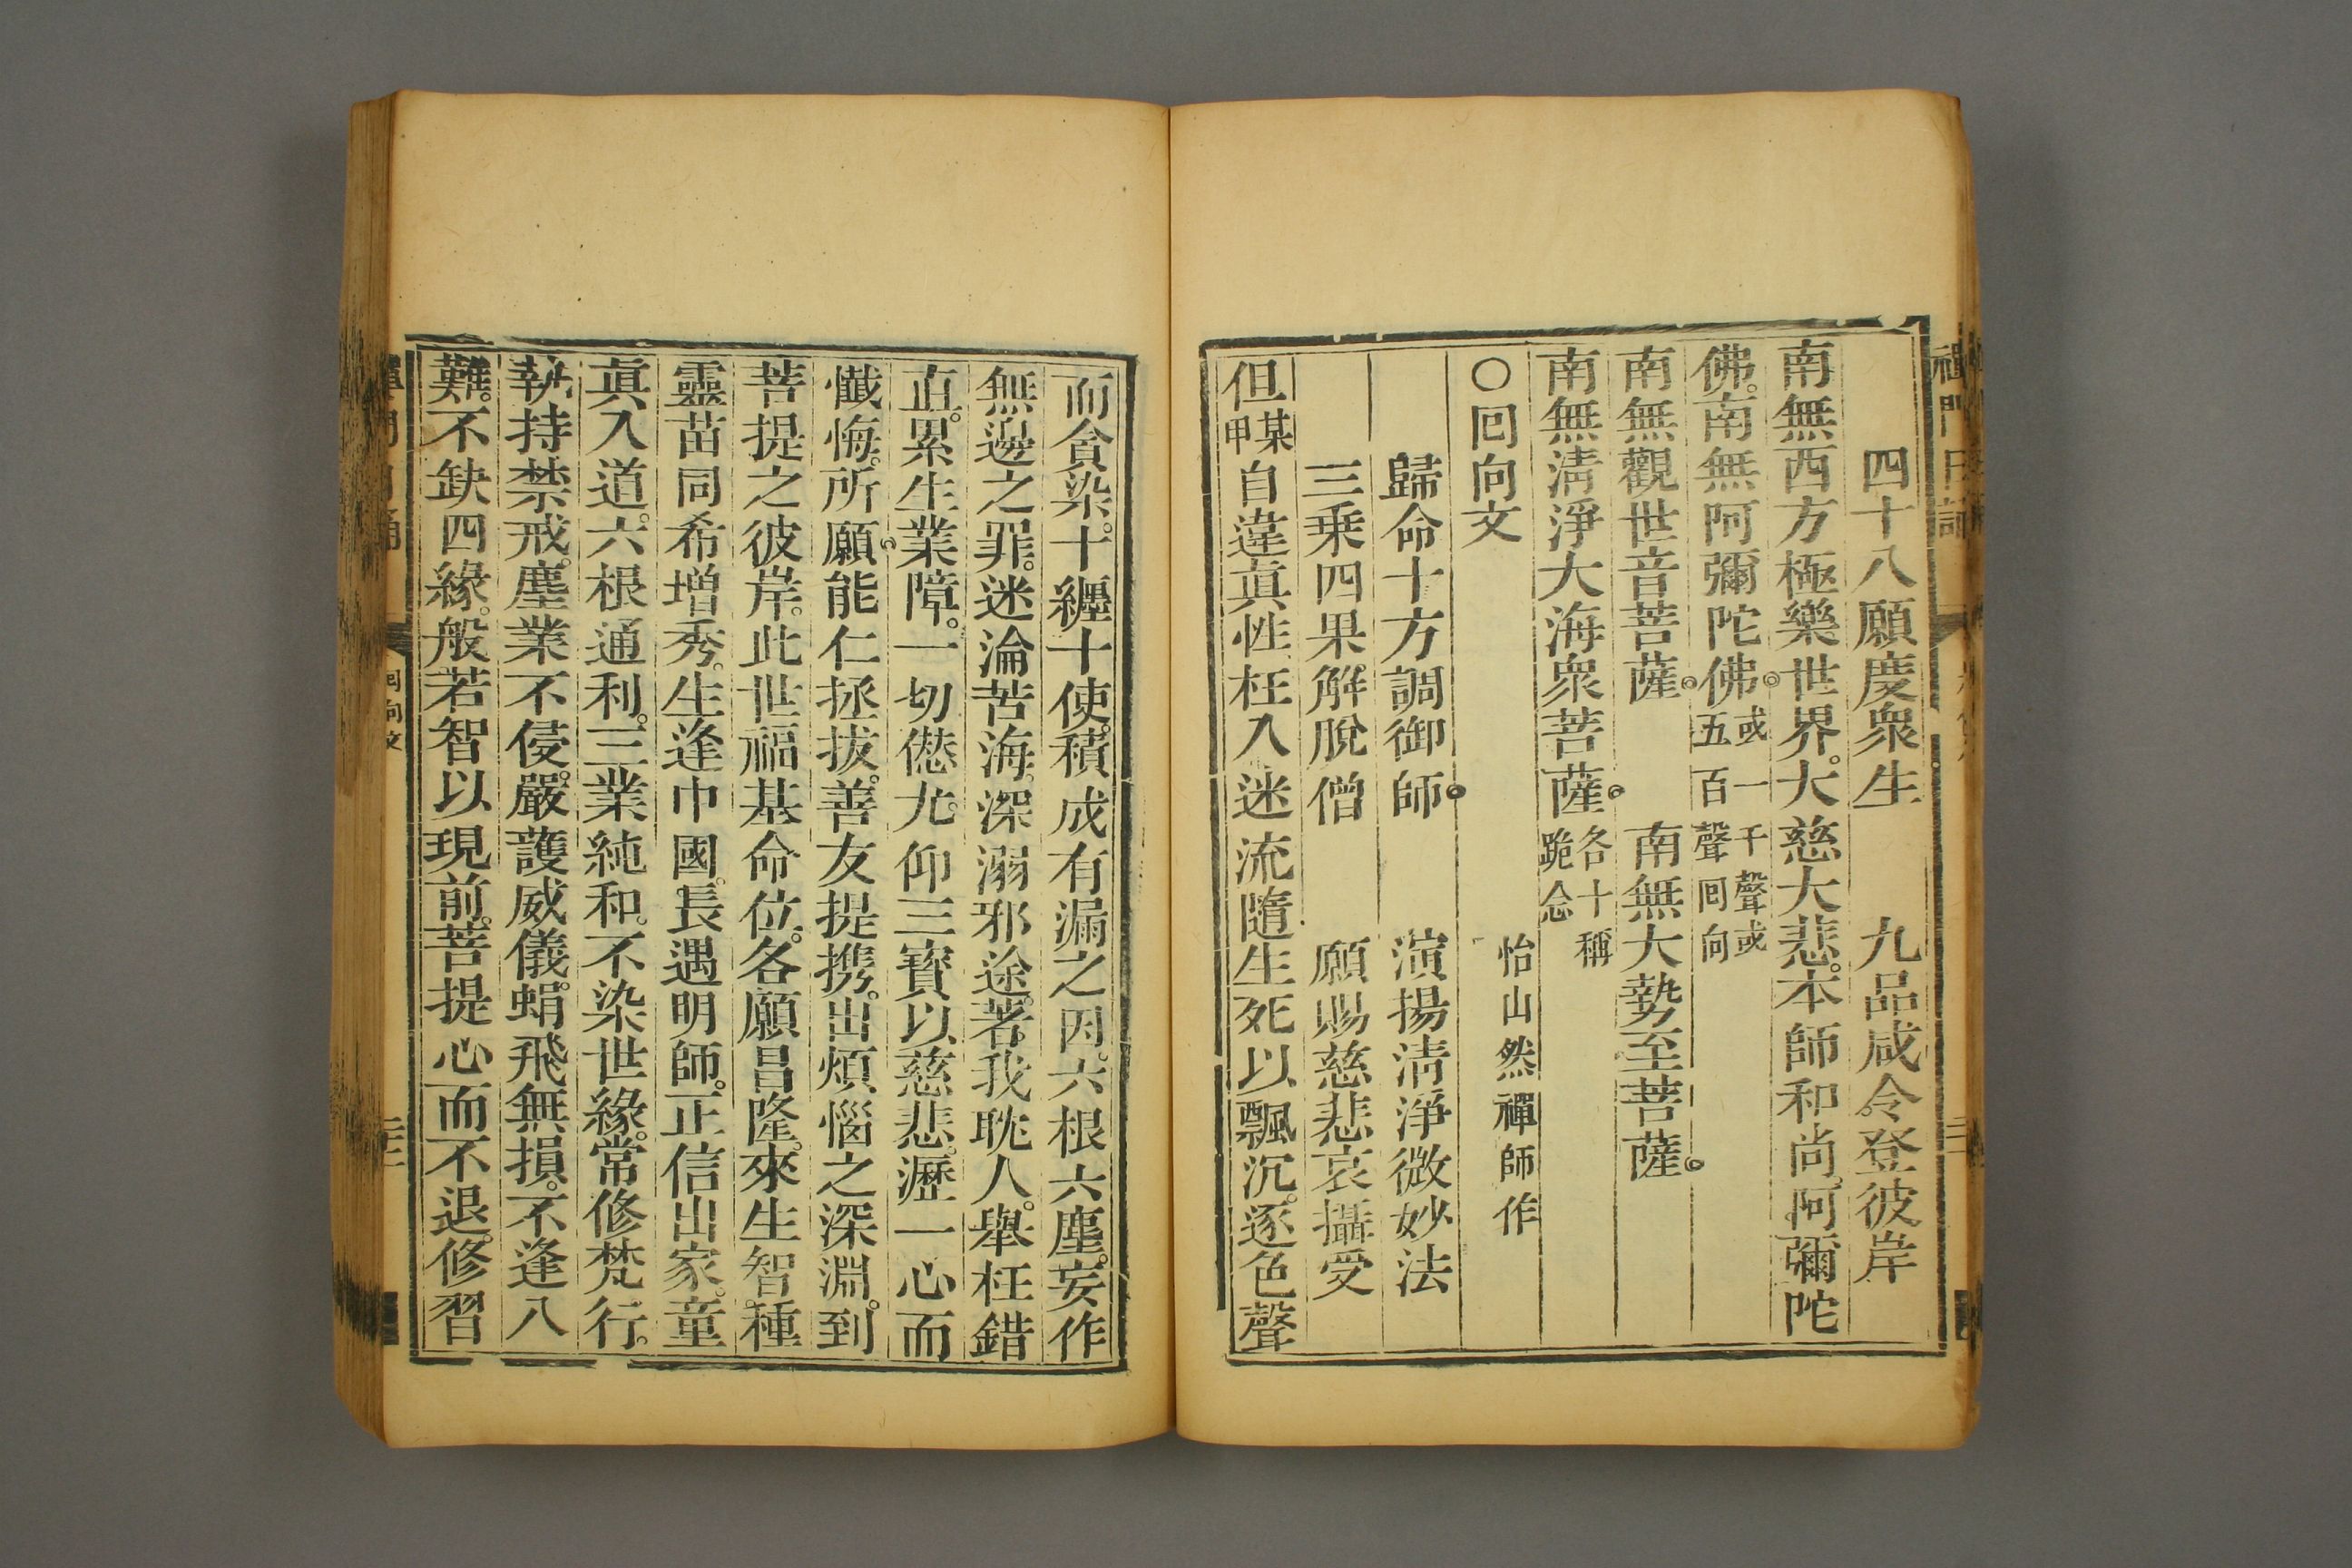 禪門日誦
四十八願慶衆生　九品咸令登彼岸
南無西方極樂世界。大慈大悲。本師和尚。阿彌陀
佛。南無阿彌陀佛。或一千聲或五百聲回向
南無觀世音菩薩。南無大勢至菩薩。
南無清淨大海衆菩薩。各十稱跪念
○回向文　怡山然禪師作
歸命十方調御師。　演揚清淨微妙法
三乗四果解脫僧　願賜慈悲哀攝受
但某甲自違眞性枉入迷流隨生死以飄沉。逐色聲
而貪染。十纏十使。積成有漏之因。六根六塵。妄作
無邊之罪。迷淪苦海。深溺邪途。著我耽人。舉枉錯
直。累生業障。一切愆尤。仰三寳以慈悲。瀝一心而
懺悔。所願能仁拯拔。善友提携。出煩惱之深淵。到
菩提之彼岸。此世福基命位。各願昌隆。來生智種
靈苗同希增秀。生逢中國。長遇明師。正信出家。童
眞入道。六根通利。三業純和。不染世緣。常修梵行。
執持禁戒。塵業不侵。嚴護威儀。蜎飛無損。不逢八
難。不缺四緣。般若智以現前。菩提心而不退。修習
回向文